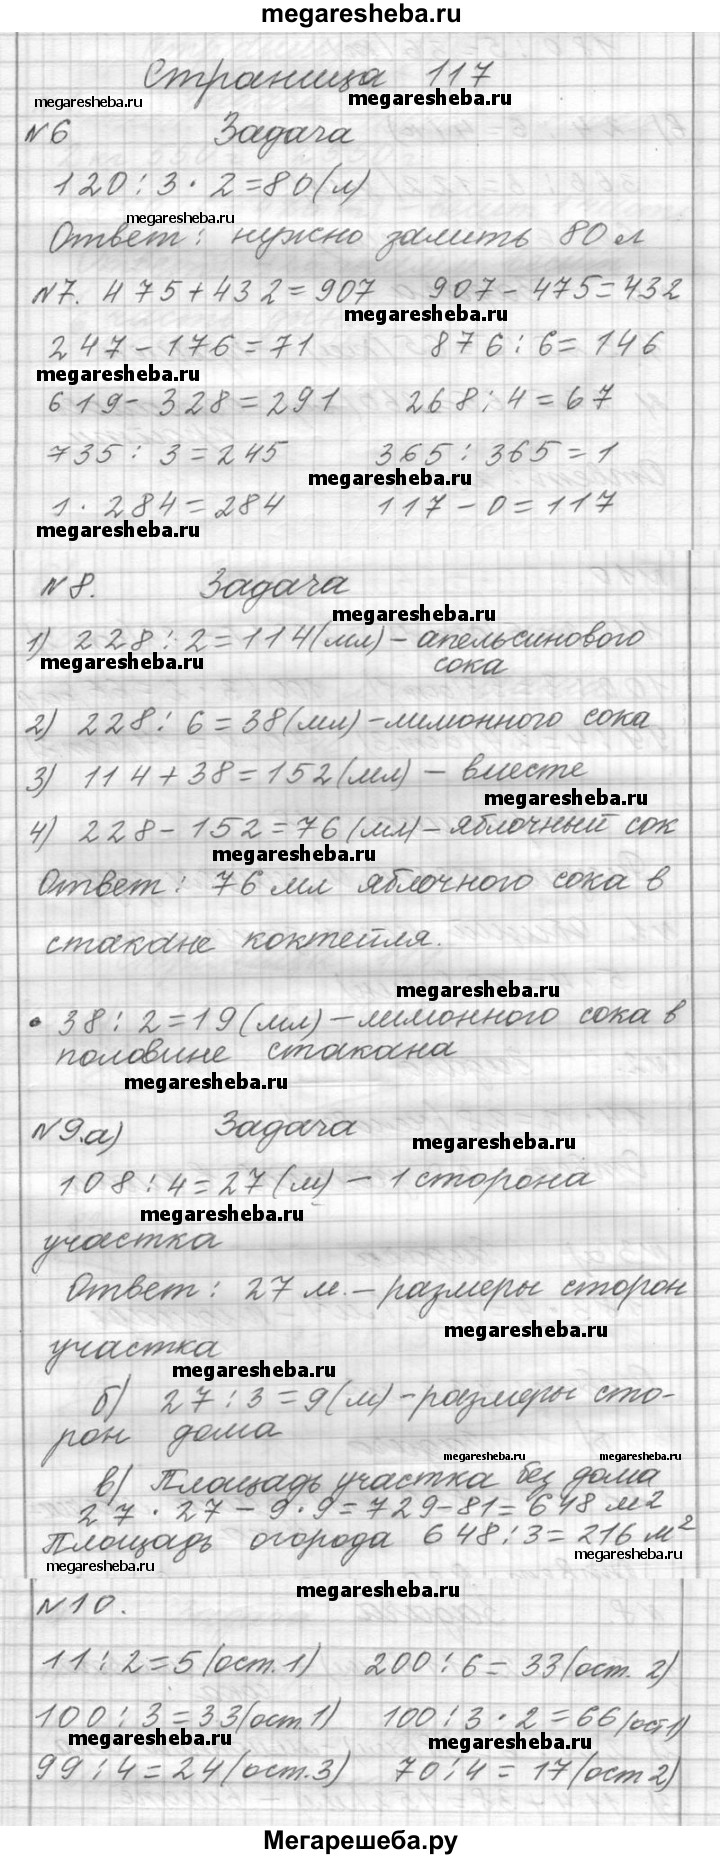 megaresheba.ru
Страница 117
megaresheba.ru megaresheba.ru
№6 Задача
120 : 3 · 2 = 80 (л)
megaresheba.ru
Ответ: нужно залить 80 л
№7. 475 + 432 = 907 907 - 475 = 432
megaresheba.ru
247 - 176 = 71 876 : 6 = 146
megaresheba.ru
619 - 328 = 291 268 : 4 = 67
735 : 3 = 245 365 : 365 = 1
megaresheba.ru
1 · 284 = 284 117 - 0 = 117
megaresheba.ru
№8. Задача
megaresheba.ru
1) 228 : 2 = 114 (мл) - апельсинового
megaresheba.ru сока
2) 228 : 6 = 38 (мл) - лимонного сока
3) 114 + 38 = 152 (мл) - вместе
megaresheba.ru
4) 228 - 152 = 76 (мл) - яблочный сок
megaresheba.ru
Ответ: 76 мл яблочного сока в
стакане коктейля.
megaresheba.ru
• 38 : 2 = 19 (мл) - лимонного сока в
половине стакана
megaresheba.ru
№9.а) Задача
megaresheba.ru
108 : 4 = 27 (м) - 1 сторона
megaresheba.ru
участка
Ответ: 27 м. - размеры сторон
megaresheba.ru
участка
megaresheba.ru
б) 27 : 3 = 9 (м) - размеры сто-
рон дома
megaresheba.ru megaresheba.ru
в) Площадь участка без дома
27 · 27 - 9 · 9 = 729 - 81 = 648 м²
Площадь огорода 648 : 3 = 216 м²
megaresheba.ru megaresheba.ru
megaresheba.ru
№10.
11 : 2 = 5 (ост. 1) 200 : 6 = 33 (ост. 2)
100 : 3 = 33 (ост. 1) 100 : 3 · 2 = 66 (ост 1)
megaresheba.ru megaresheba.ru
99 : 4 = 24 (ост. 3) 70 : 4 = 17 (ост 2)
Мегарешеба.ру